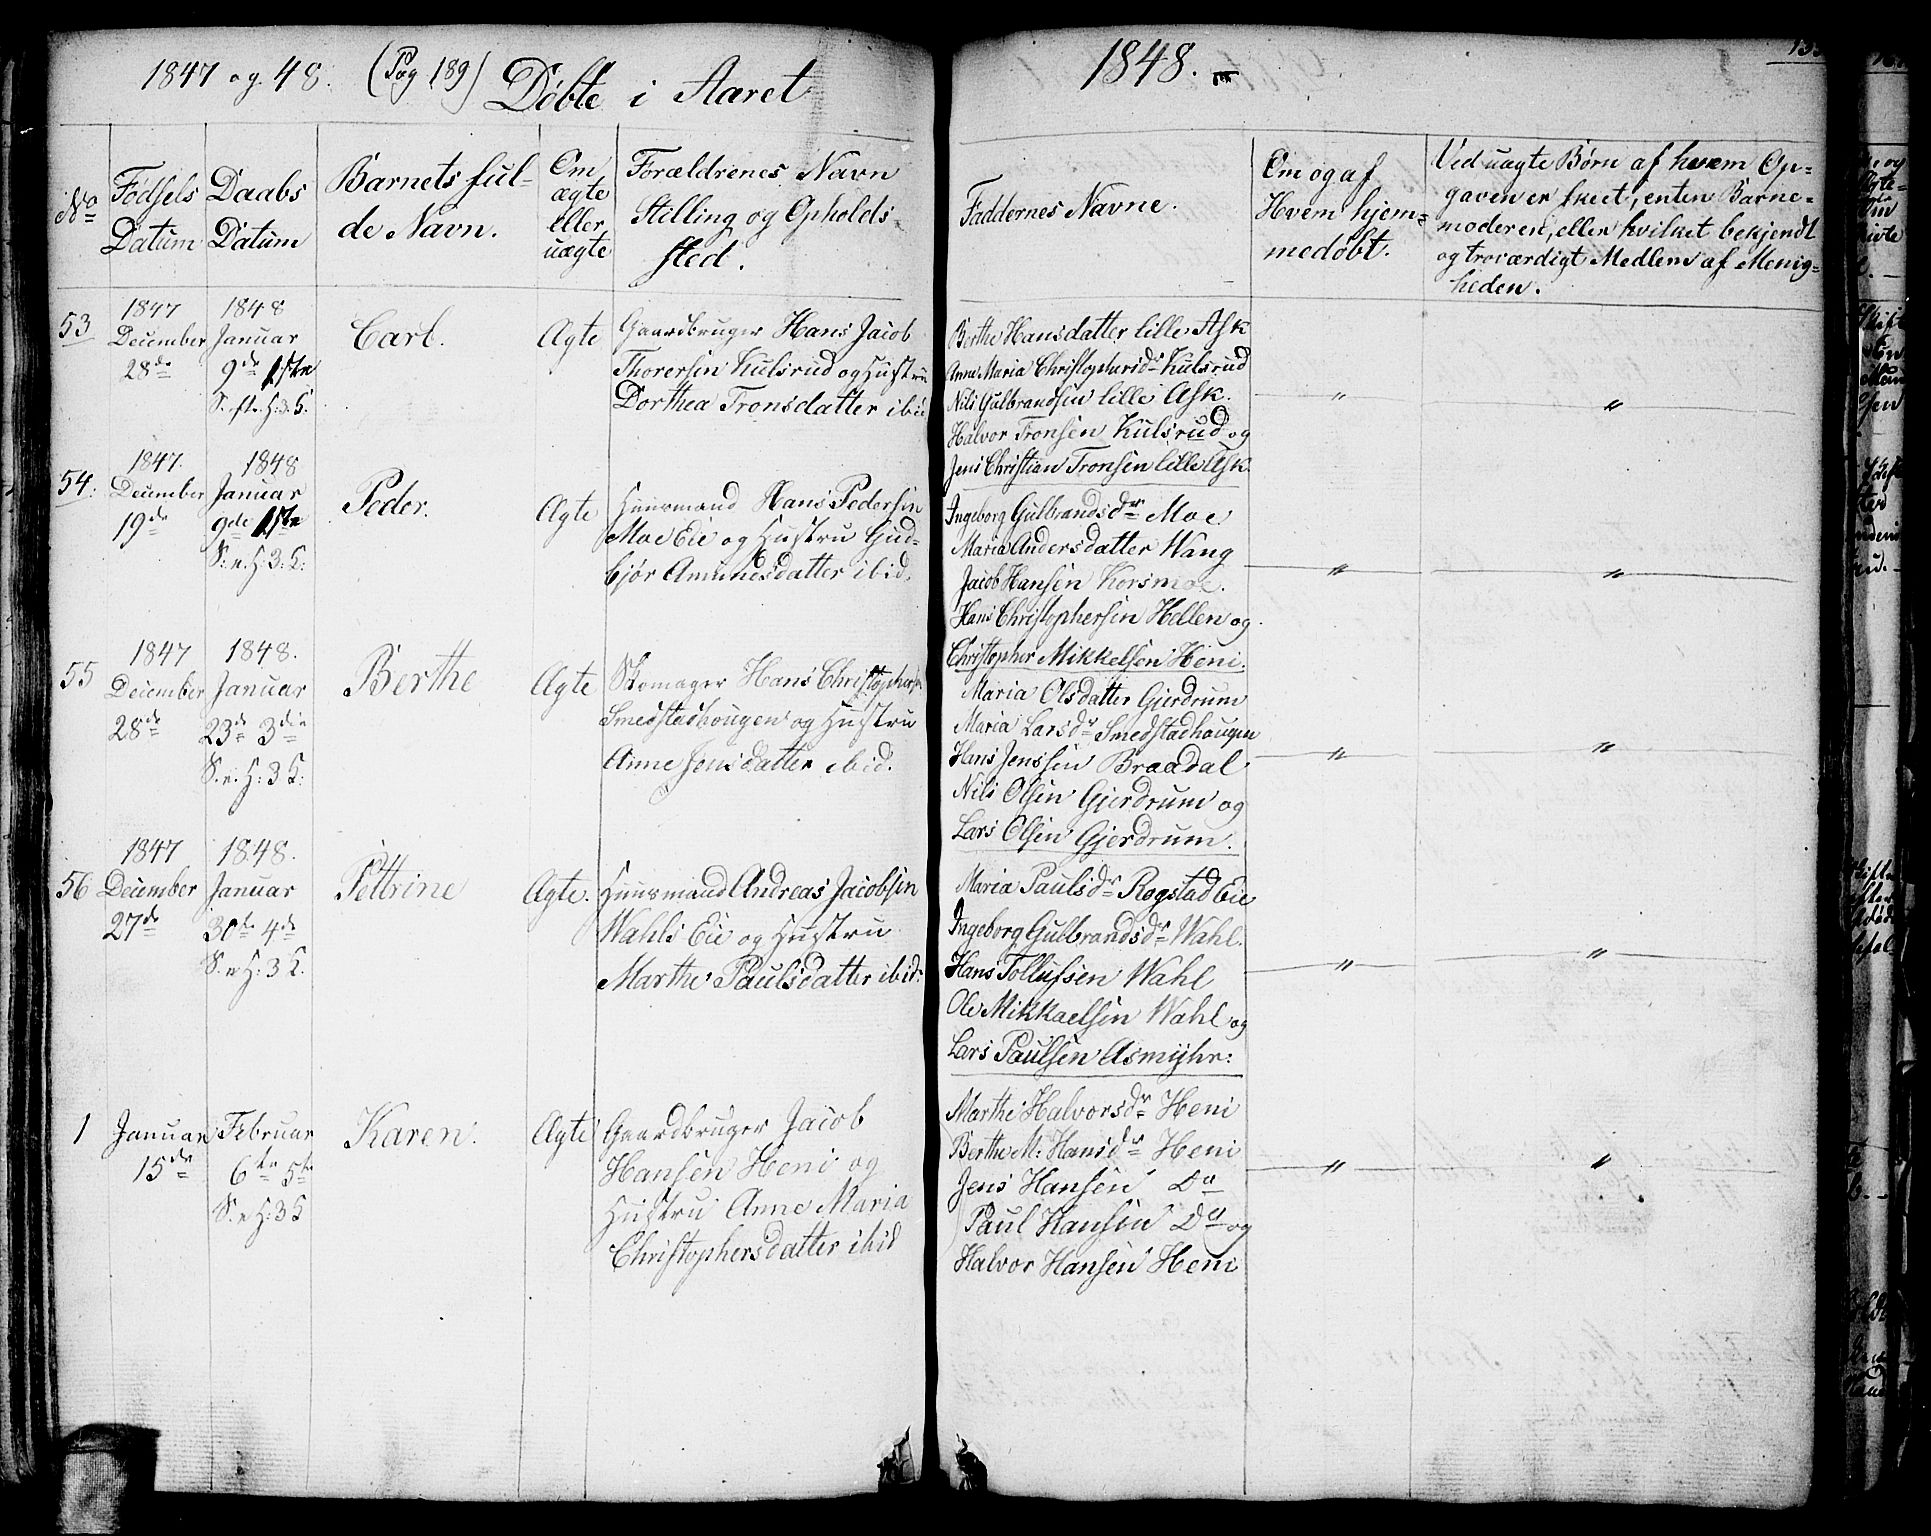 1847 og 48. (Pag 189) Döbte i Aaret 1848.
No
Fødsels Datum
Daabs Datum
Barnets ful-
de Navn.
Om
ægte
eller
uægte
Forældrenes Navn
Stilling og Opholds-
sted.
Faddernes Navne.
Om og af
Hvem hjem-
medøbt.
Ved uagte Børn af hvem Op-
gaven er skeet, enten Barne-
moderen, eller hvilket bekjendt
og troværdigt Medlem af Menig-
heden.
53
1847
December
28de
1848
Januar
9de 1ste
S. e. H: 3 K.
Carl.
Agte
Gaardbruger Hans Jacob
Thoresen Kulsrud og Hustru
Dorthea Tronsdatter ibid
Berthe Hansdatter lille Ask
Anne Maria Christophersdr Kulsrud
Nils Gulbrandsen lille Ask.
Halvor Tronsen Kulsrud og
Jens Christian Tronsen lille Ask.
"
"
54.
1847.
December
19de
1848
Januar
9de 1ste
S. e. H: 3. K:
Peder.
Agte
Huusmand Hans Pedersen
Moe Eie og Hustru Gud-
bjør Amundsdatter ibid.
Ingeborg Gulbrandsdr Moe
Maria Andersdatter Wang
Jacob Hansen Korsmoe.
Hans Christophersen Hellen og
Christopher Mikkelsen Heni.
"
"
55
1847
December
28de
1848.
Januar
23de 3die
S. e. H: 3 K:
Berthe
Agte
Skomager Hans Christophersen
Smedstadhougen og Hustru
Anne Jensdatter ibid.
Maria Olsdatter Gjerdrum
Maria Larsdr Smedstadhaugen
Hans Jenssen Braadal
Nils Olsen Gjerdrum og
Lars Olsen Gjerdrum.
"
"
56
1847
December
27de
1848.
Januar
30te 4de
S. e H: 3 K.
Pettrine
Agte.
Huusmand Andreas Jacobsen
Wahls Eie og Hustru
Marthe Paulsdatter ibid.
Maria Paulsdr Rogstad Eie
Ingeborg Gulbrandsdr Wahl.
Hans Tollufsen Wahl
Ole Mikkaelsen Wahl og
Lars Paulsen Asmyhr:
"
"
1
Januar
15de
Februar
6te 5te
S. e H: 3 K
Karen.
Agte
Gaardbruger Jacob
Hansen Heni og
Hustru Anne Maria
Christophersdatter ibid
Marthe Halvorsdr Heni
Berthe M: Hansdr Heni
Jens Hansen Do
Paul Hansen Do og
Halvor Hansen Heni
"
"